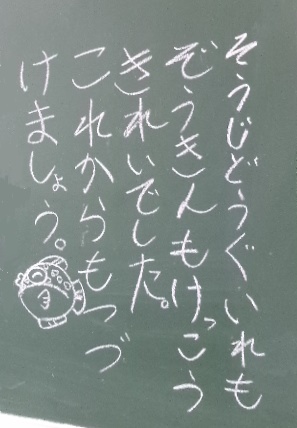 そうじどうぐいれも
ぞうきんもけっこう
きれいでした。
これからもつづ
けましょう。